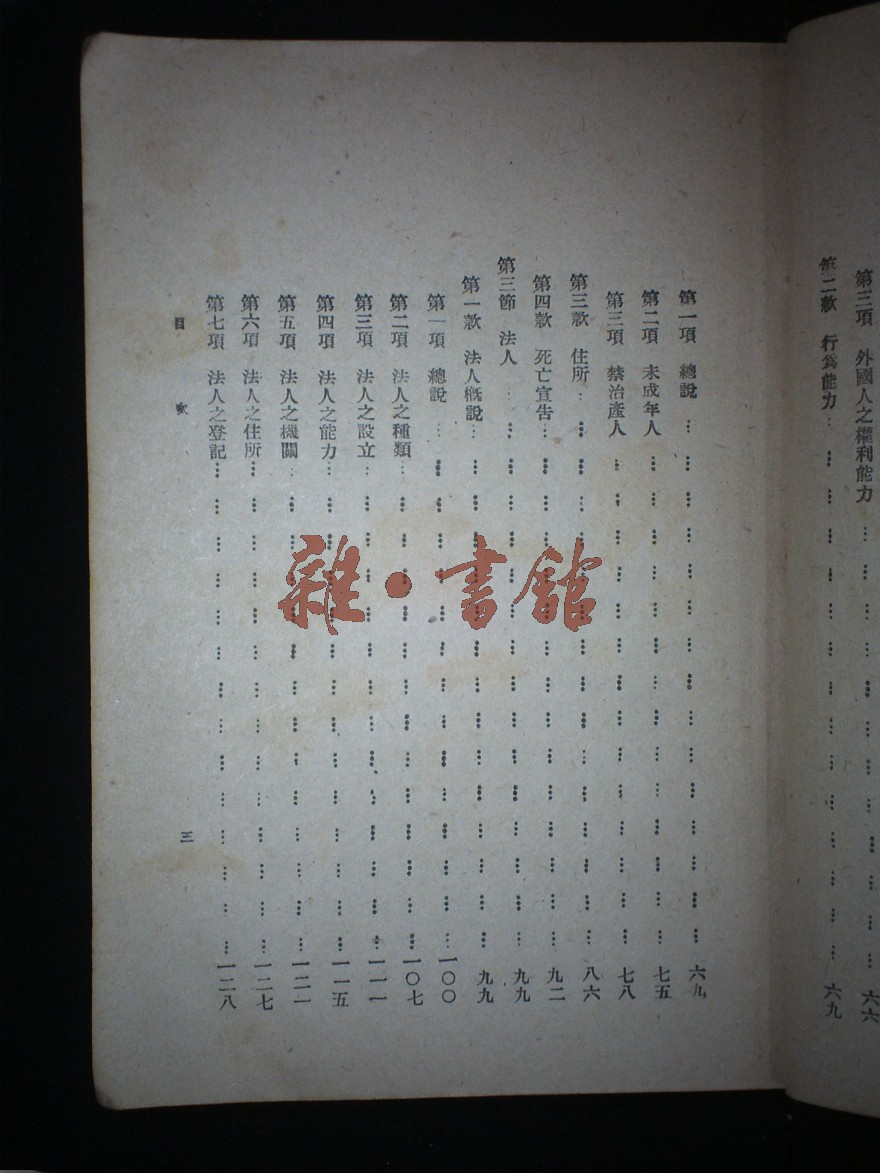 第三項　外國人之權利能力……六六
第二款　行爲能力……六九
第一項　總說……六九
第二項　未成年人……七五
第三項　禁治產人……七八
第三款　住所……八六
第四款　死亡宣告……九二
第三節　法人……九九
第一款　法人槪說……九九
第一項　總說……一〇〇
第二項　法人之種類……一〇七
第三項　法人之設立……一一一
第四項　法人之能力……一一五
第五項　法人之機關……一二一
第六項　法人之住所……一二七
第七項　法人之登記……一二八
目　次　三
雜·書館